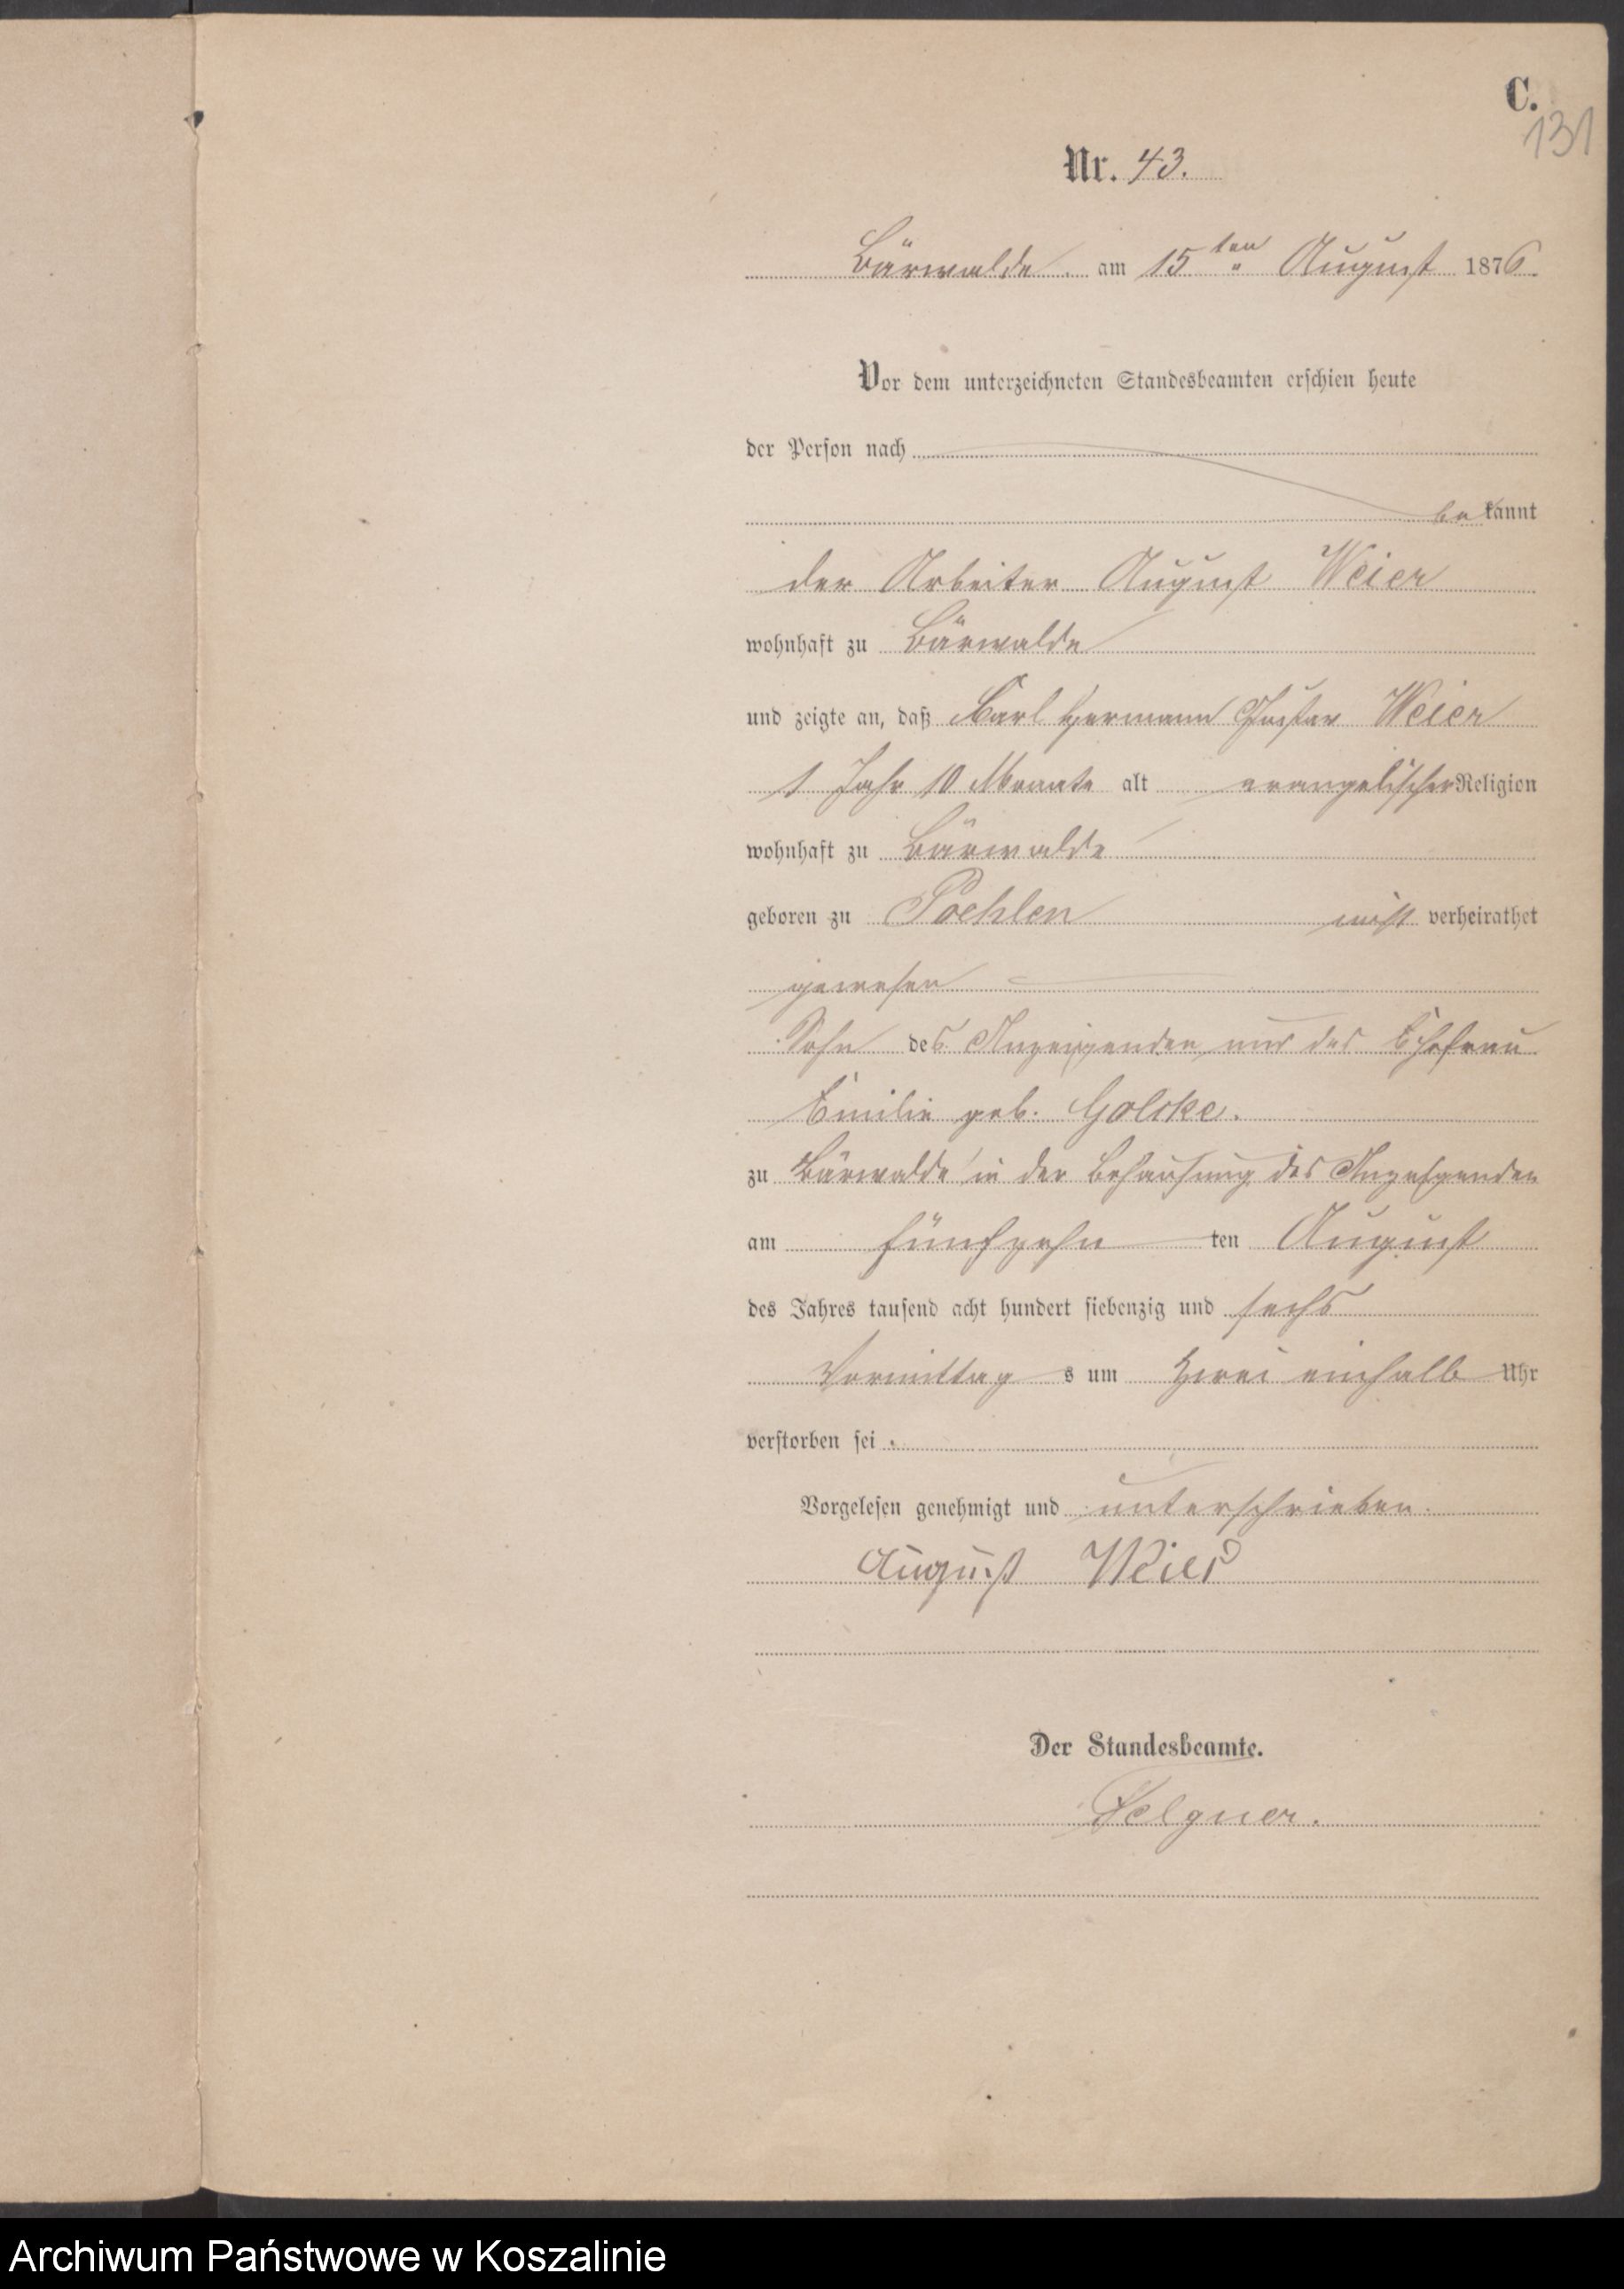 C.
131
Nr. 43.
Bärwalde am 15ten August 1876.
Vor dem unterzeichneten Standesbeamten erschien heute
der Person nach
bekannt
der Arbeiter August Weier
wohnhaft zu Bärwalde
und zeigte an, daß Carl Hermann Gustav Weier
1 Jahr 10 Monate alt evangelischer Religion
wohnhaft zu Bärwalde
geboren zu Poehlen nicht verheirathet
gewesen
Sohn des Anzeigenden und der Ehefrau
Emilie geb. Golcke.
zu Bärwalde in der Behausung des Anzeigenden
am fünfzehn ten August
des Jahres tausend acht hundert siebenzig und sechs
Vormittag s um zwei einhalb Uhr
verstorben sei.
Vorgelesen genehmigt und unterschrieben.
August Weier
Der Standesbeamte.
Felgner.
Archiwum Państwowe w Koszalinie